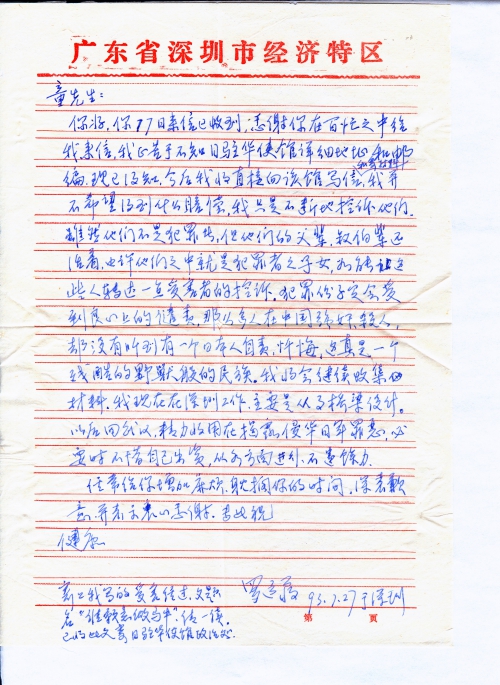 广东省深圳市经济特区
童先生:
你好,你17日来信已收到,感谢你在百忙之中给
我来信,我正苦于不知日驻华使馆详细地址和邮
编,现已得知,今后我将直接向该馆写信,我并
不希望得到什么赔偿,我只是不断地控诉他们.
虽然他们不是犯罪者,但他们的父辈,叔伯辈还
活着,也许他们之中就是犯罪者之子女,
些人转达一点受害者的控诉.犯罪份子定会受
到良心上的谴责,那么多人在中国强奸杀人,
却没有听到有一个日本人自责,忏悔,这真是一个
残酷的野兽般的民族.我将会继续收集
材料.我现在在深圳工作.主要是从事桥梁设计.
以后回武汉,精力将用在揭露侵华日军罪恶,必
要时不惜自己出资,从各方面进行不遗余力.
经常给你增加麻烦,耽搁你的时间,深表歉
意,并表示衷心感谢.专此祝
健康
93.7.27于深圳
第 页
寄上我写的
名
已将此文寄日驻华使馆政治处.